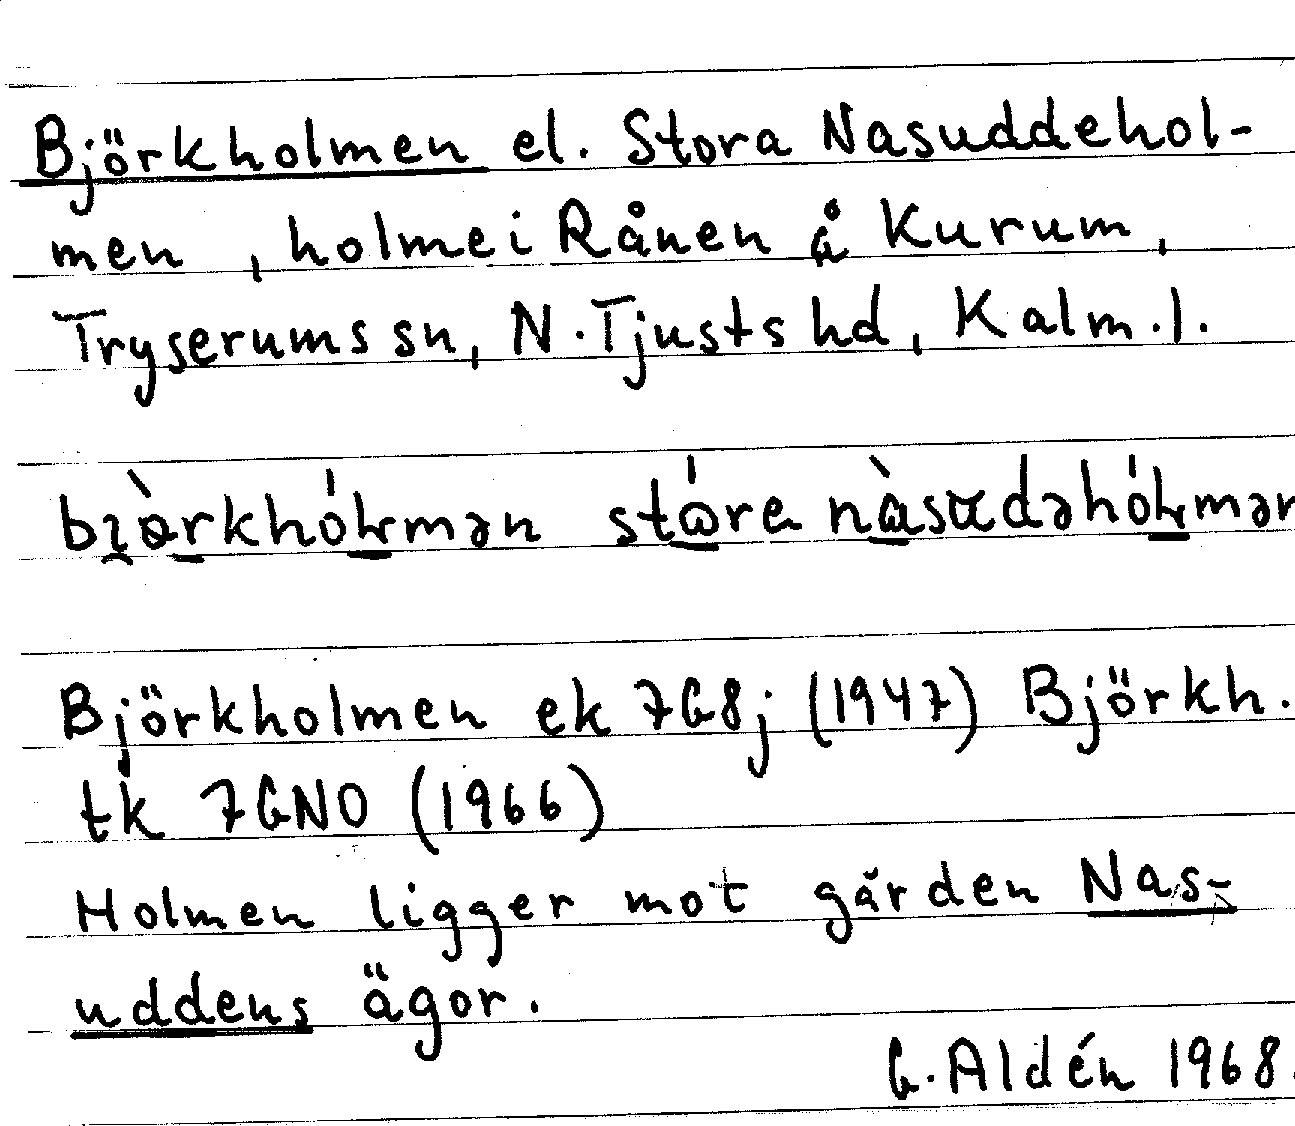 Björkholmen el. Stora Nasuddehol-
men, holme i Rånen å Kurum,
Tryserums sn, N. Tjusts hd, Kalm. l.
Björkholmen ek 7G8j (1947) Björkh.
tk 7GNO (1966)
Holmen ligger mot gården Nas-
uddens ägor.
G. Aldén 1968.